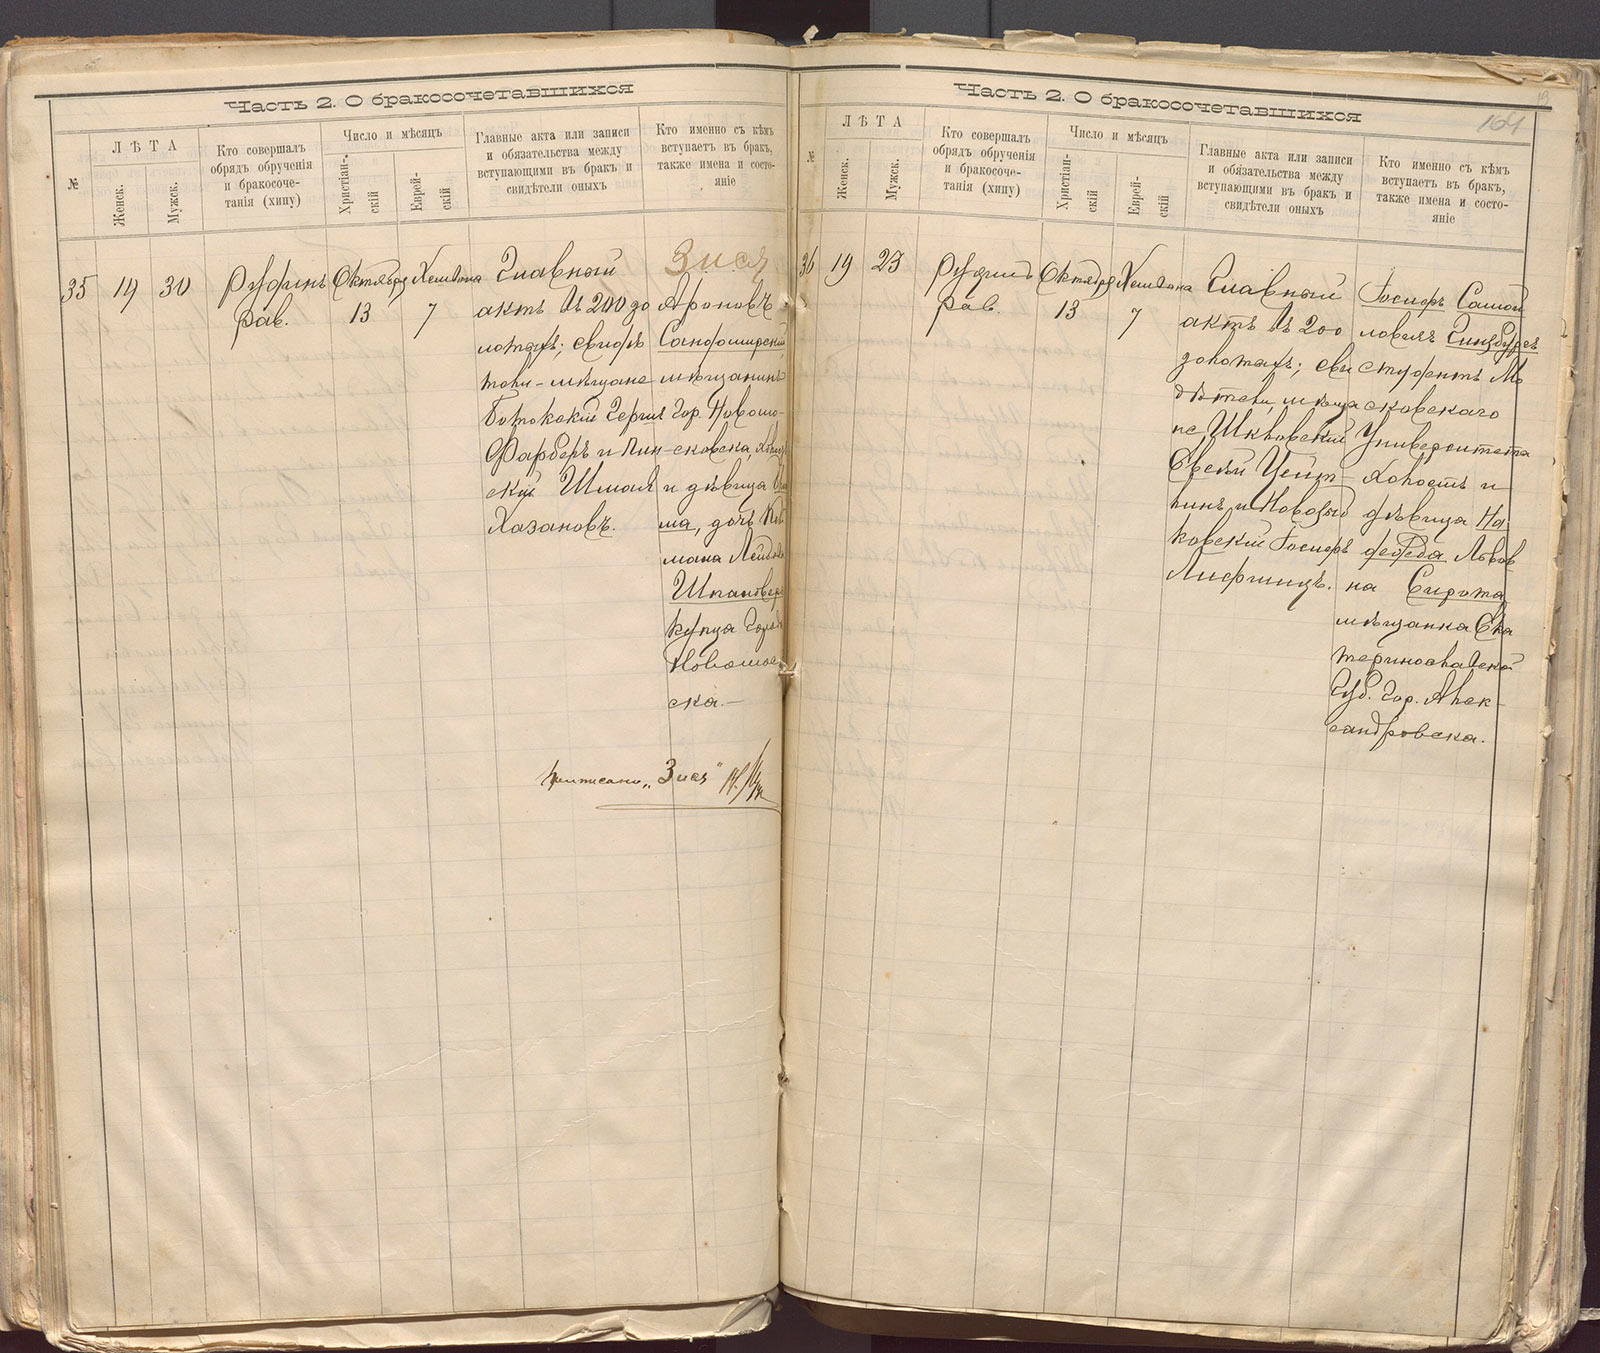 Часть 2. О бракосочетавшихся
№
ЛѢТА
Женск.
Мужск.
Кто совершалъ
обрядъ обрученія
и бракосоче-
танія (хипу)
Число и мѣсяцъ
Христіан-
скій
Еврей-
скій
Главные акта или записи
и обязательства между
вступающими въ бракъ и
свидѣтели оныхъ
Кто именно съ кѣмъ
вступаетъ въ бракъ,
также имена и состо-
яніе
35
19
30
рав.
Октября
13
Хешвона
7
Главный
актъ въ 200 зо
лотыхъ; свидѣ
тели - мѣщане
Фарберъ и Пин-
скій Шмая
Хазановъ.
Зися
Ароновъ
мѣщанинъ
гор. Новомо-
сковска,
и дѣвица
ма, дочь
Шпановер
купца гор.
Новомос
ска.-
приписано „Зися"
Часть 2. О бракосочетавшихся
164
№
ЛѢТА
Женск.
Мужск.
Кто совершалъ
обрядъ обрученія
и бракосоче-
танія (хипу)
Число и мѣсяцъ
Христіан-
скій
Еврей-
скій
Главные акта или записи
и обязательства между
вступающими въ бракъ и
свидѣтели оныхъ
Кто именно съ кѣмъ
вступаетъ въ бракъ,
также имена и состо-
яніе
36
19
25
рав.
Октября
13
Хешвона
7
Главный
актъ въ 200
золотыхъ; сви
дѣтели, мѣща
не, Шкловскій
Евсѣй Цейт-
линъ и Новозыб
ковскій Іосифъ
Лифшицъ.
Іосифъ Самой
ловичъ Гинзбургъ
студентъ Мо
сковскаго
Университета
холостъ и
дѣвица На-
дежда Львов
на Сирота
мѣщанка Ека
теринославской
Губ. гор. Алек-
сандровска.